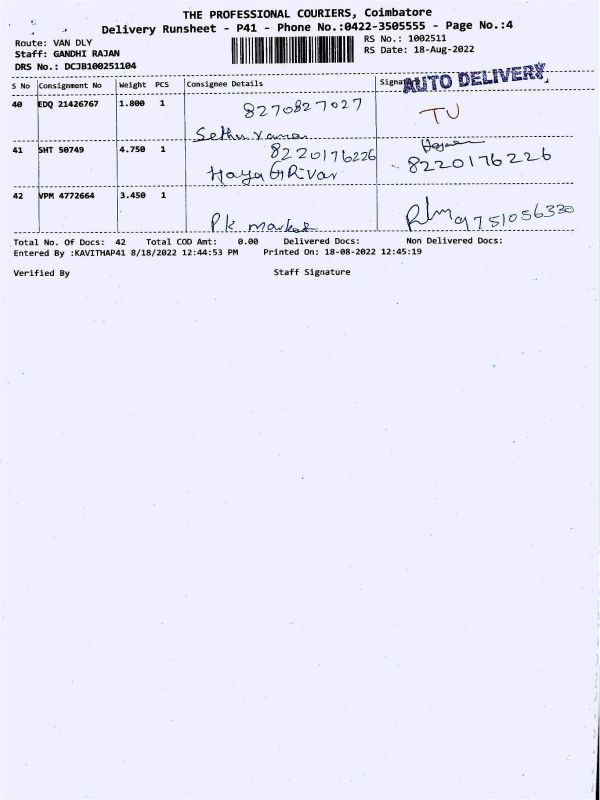 THE PROFESSIONAL COURIERS, Coimbatore
Delivery Runsheet - P41 - Phone No.:0422-3505555 - Page No.:4
Route: VAN DLY
RS No.: 1002511
Staff: GANDHI RAJAN
RS Date: 18-Aug-2022
DRS No.: DCJB100251104
AUTO DELIVERY
S No Consignment No Weight PCS Consignee Details
40 EDQ 21426767 1.800 1 8270827027 TU
41 SHT 50749 4.750 1 8220176226 8220176226
42 VPM 4772664 3.450 1
P.k 9751056330
Total No. Of Docs: 42 Total COD Amt: 0.00 Delivered Docs: Non Delivered Docs:
Entered By :KAVITHAP41 8/18/2022 12:44:53 PM Printed On: 18-08-2022 12:45:19
Verified By Staff Signature